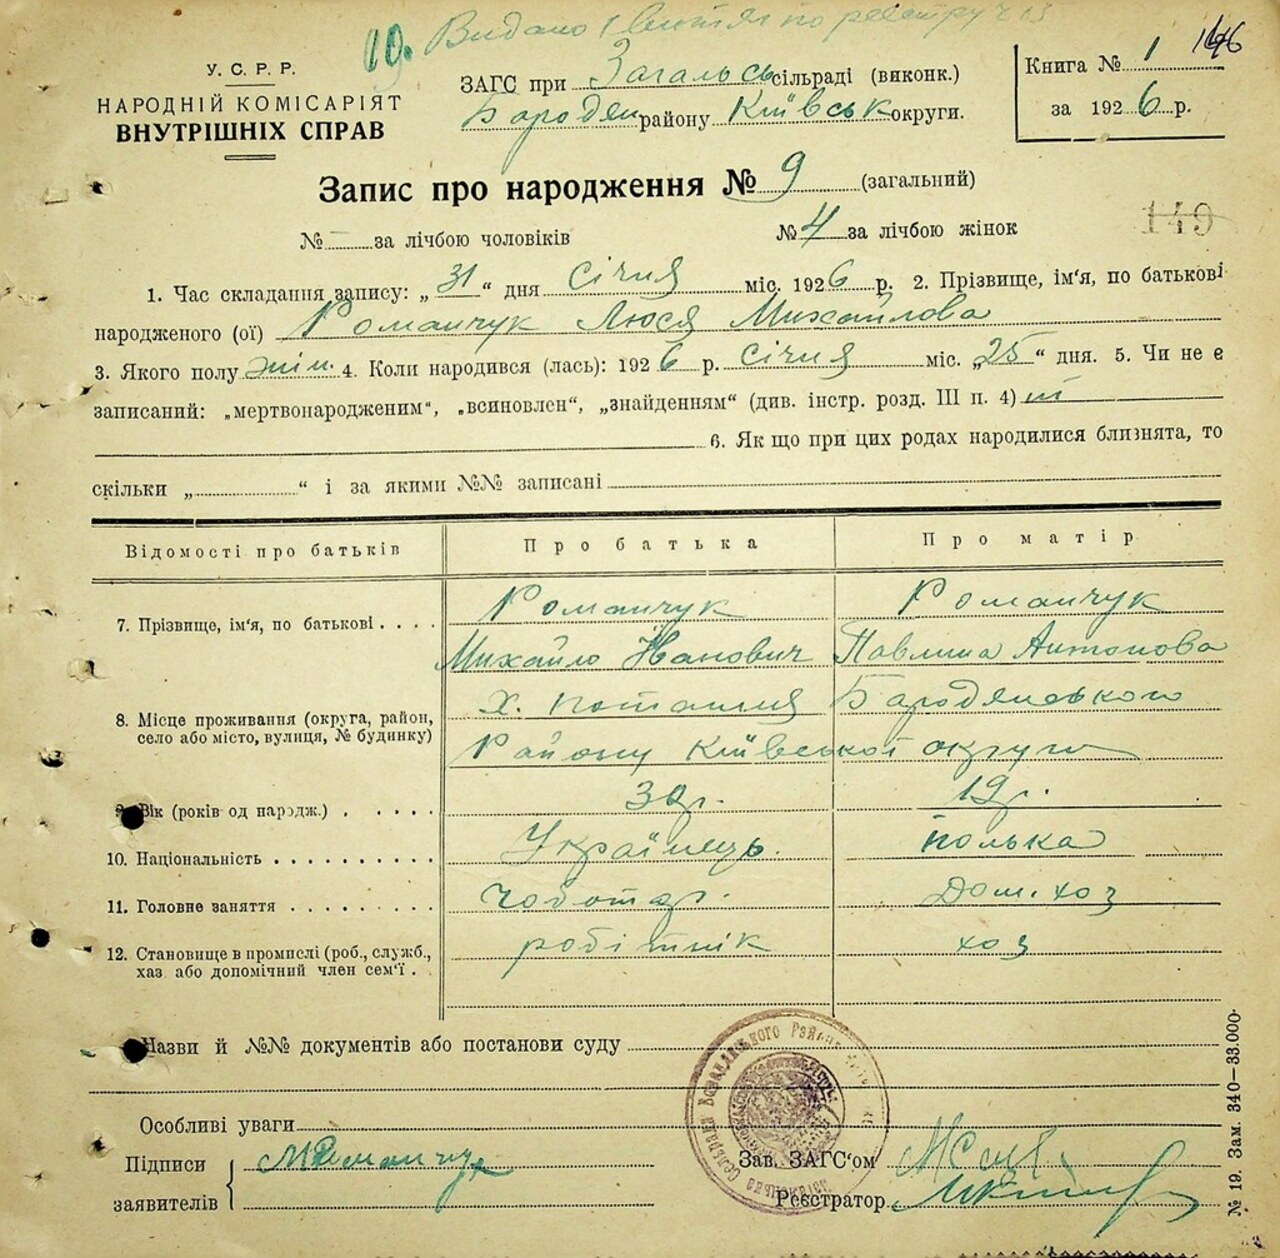 19. Видано 1 витяг по реєстру ч 13
146
У. С. Р. Р.
НАРОДНІЙ КОМІСАРІЯТ
ВНУТРІШНІХ СПРАВ
ЗАГС при Загальсь сільраді (виконк.)
Бародян району Київськ округи.
Книга № 1
за 1926 р.
Запис про народження № 9 (загальний)
149
№ — за лічбою чоловіків № 4 за лічбою жінок
1. Час складання запису: „31“ дня Січня міс. 1926 р. 2. Прізвище, ім'я, по батькові
народженого (ої) Романчук Люся Михайлова
3. Якого полу жін. 4. Коли народився (лась): 1926 р. Січня міс. „25“ дня. 5. Чи не є
записаний: „мертвонародженим“, „всиновлен“, „знайденням“ (див. інстр. розд. III п. 4)
6. Як що при цих родах народилися близнята, то
скільки „ “ і за якими №№ записані
Відомості про батьків Про батька Про матір
7. Прізвище, ім'я, по батькові . . . . Романчук Романчук
Михайло Іванович Павлина Антонова
8. Місце проживання (округа, район, село або місто, вулиця, № будинку) х. Поташня Бародянського
Району Київської округи
9. Вік (років од народж.) . . . . . 30 р. 19 р.
10. Національність . . . . . . . . . . Українець. Полька
11. Головне заняття . . . . . . . . . Чоботар. Дом. хоз
12. Становище в промислі (роб., служб., робітнік хоз
хаз або допомічний член сем'ї . .
Назви й №№ документів або постанови суду
Особливі уваги
Підписи заявителів МРоманчук
Зав. ЗАГС'ом
Реєстратор
№ 19. Зам. 340—33.000·